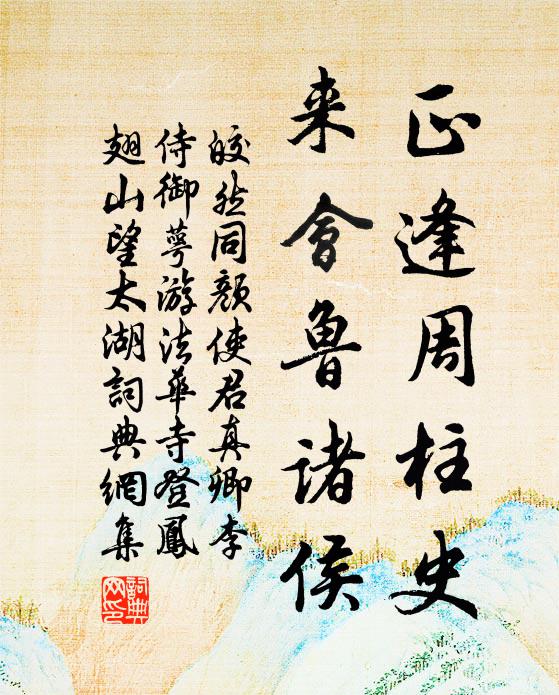 正逢周柱史
来會魯诸侯
皎然同顏使君真卿李
侍御萼游法華寺登鳳
翅山望太湖詞典網集
詞典
网印